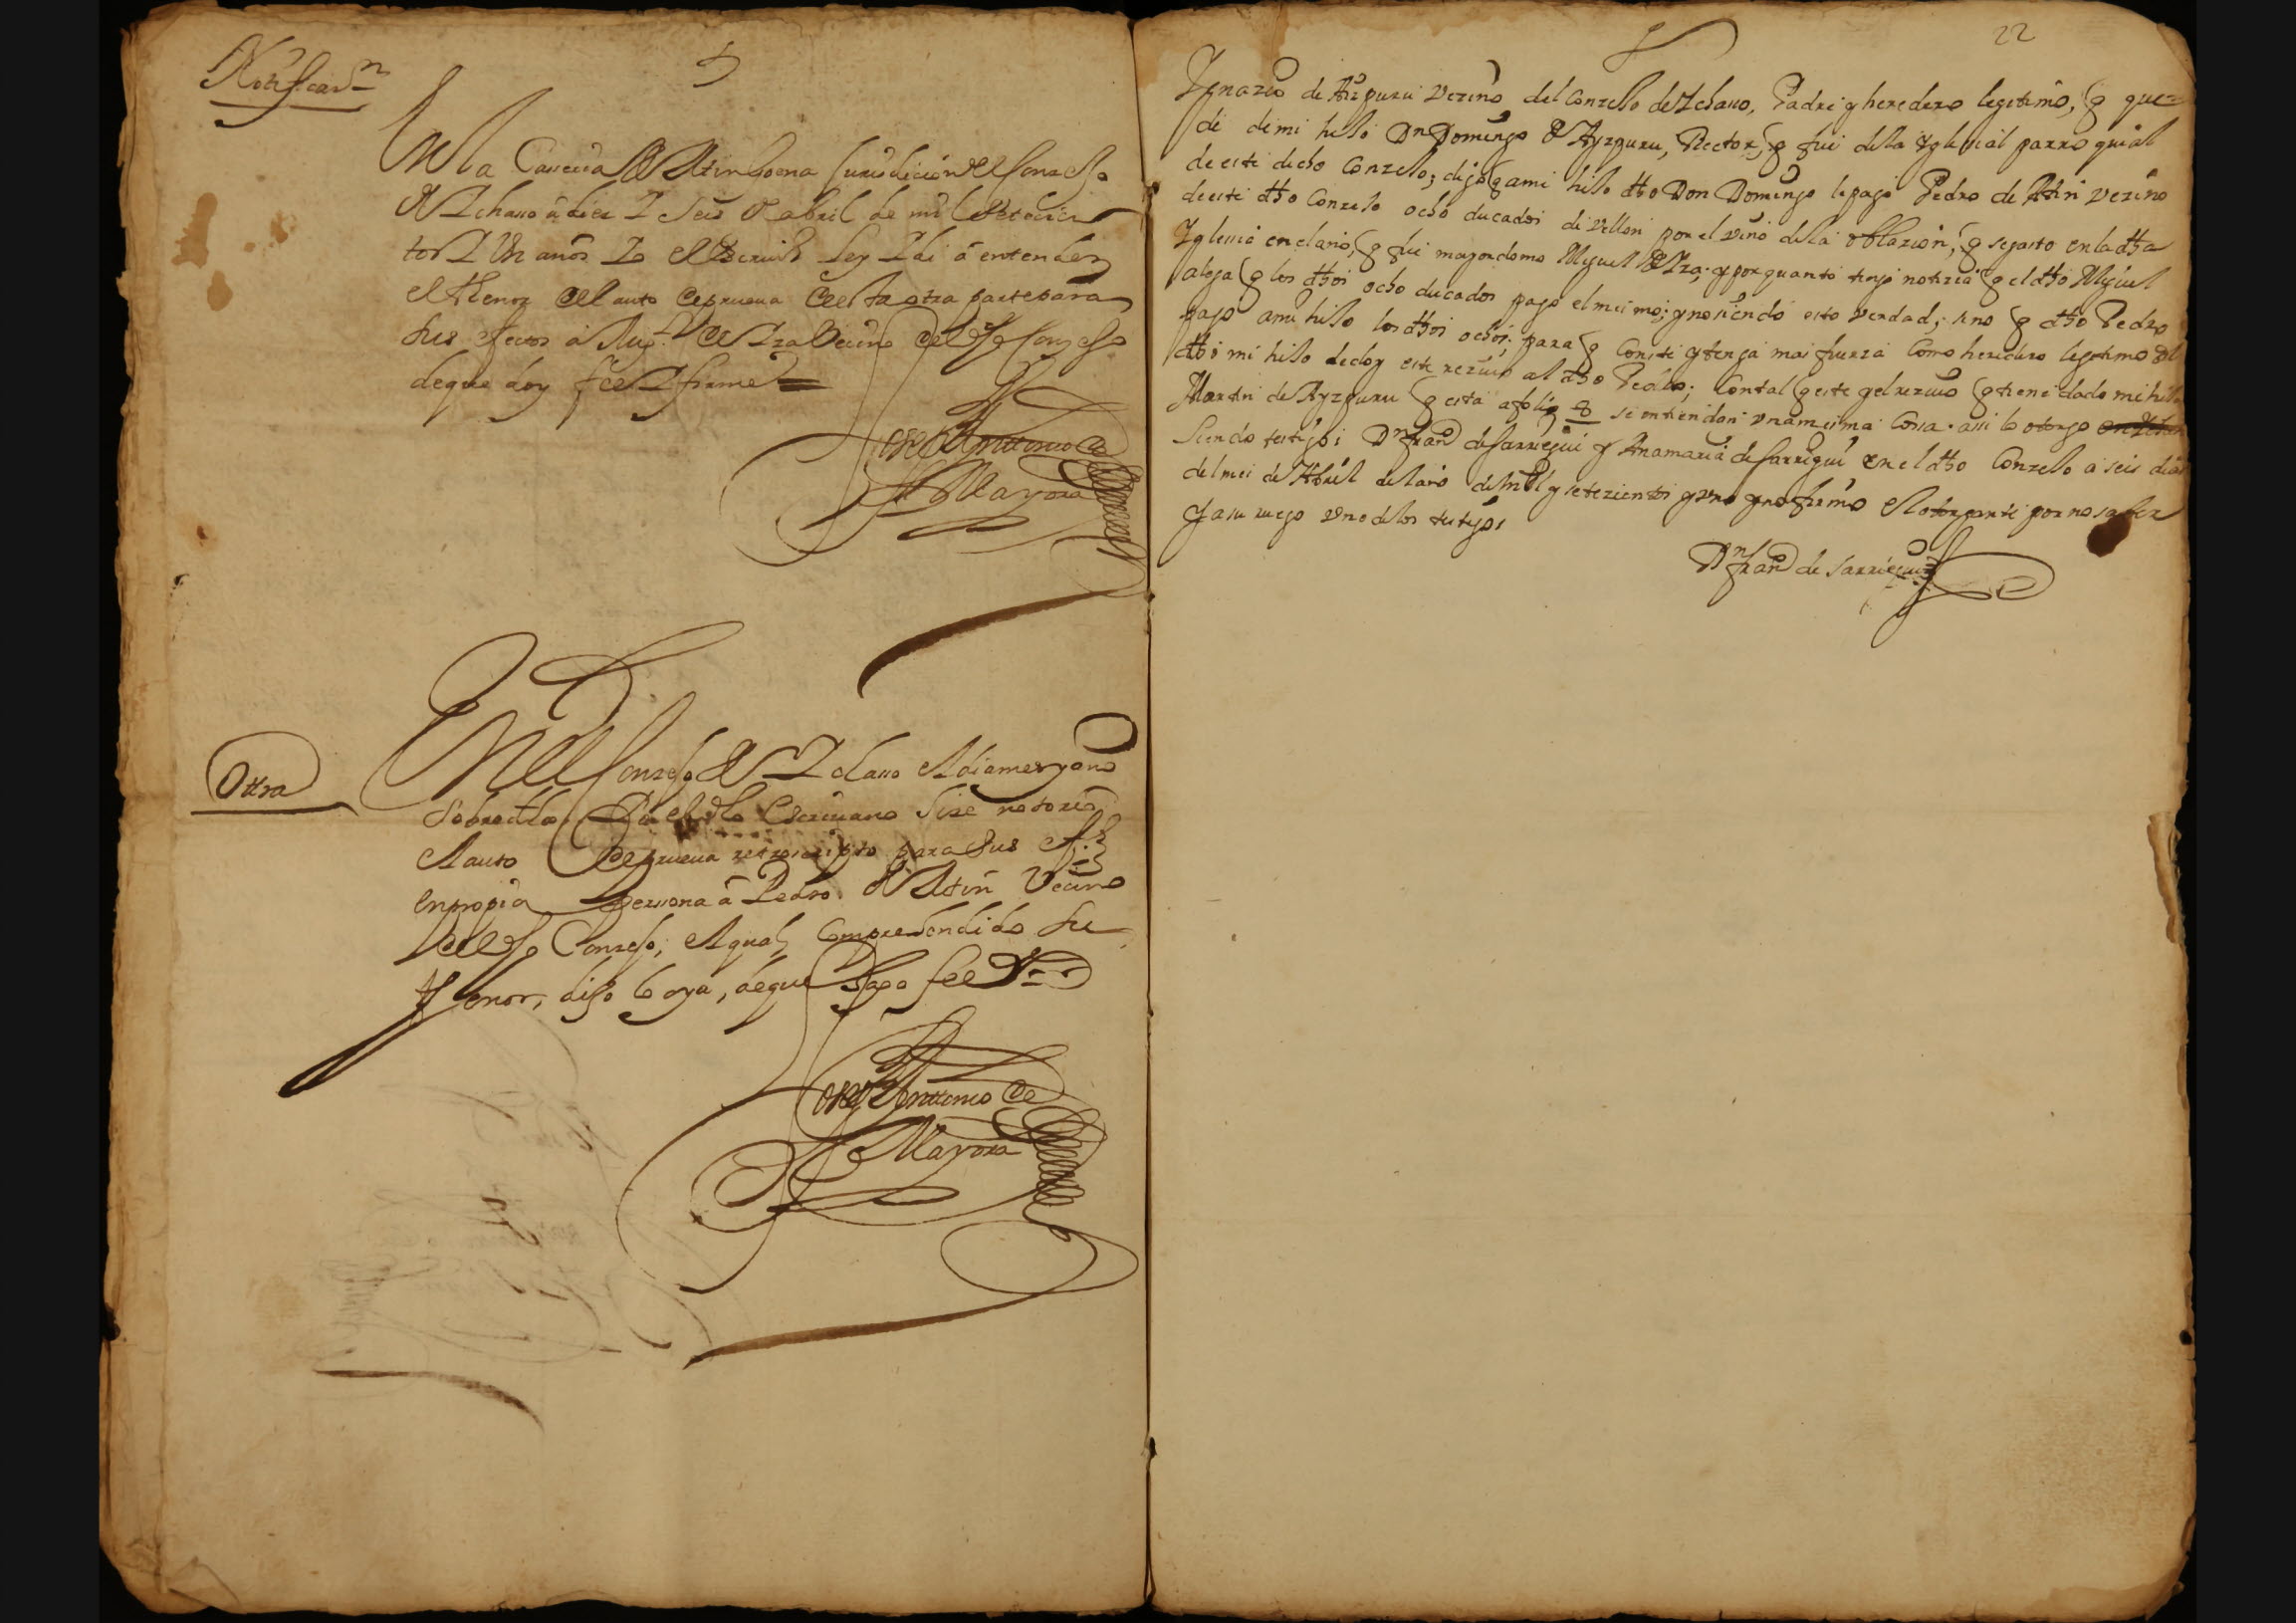 Notificaon
En la Caseria de Atin Goena Jurisdicion del Conzejo
de Ichaso a diez I seis de abril de mil Setecien
tos I Un años Yo el Escriuo ley I di à entender
el thenor del auto de prueua de la otra parte para
sus efectos a Migl de Iza Vecino del dho Conzejo
de que doy fee I firme
Joseph Anttonio de
Mayora
Ottra
En el Conzejo de Ichaso el dia mes y año
sobre dho Yo el dho Escriuano hize notorio
el auto de prueua retroscripto para sus efos
en propia persona à Pedro de Atin Vecino
del dho Conzejo; el qual comprehendido su
thenor, dijo lo oya, de que hago fee
Joseph Anttonio de
Mayora
22
Ignazio de Aizpuru vezino del Conzello de Ichaso, Padre y heredero legitimo, q que
de de mi hilo Dn Domingo de Ayzpuru, Rector, q fue de la yglesial parroquial
de este dicho Conzelo; digo q a mi hilo dho Don Domingo le pago Pedro de Atin vezino
de este dho Conzelo ocho ducados de vellon por el vino de la oblazion, q se gasto en la dha
Yglesia en el año, q fue mayordomo Miguel de Iza; y por quanto tengo notizia q el dho Miguel
alega q los dhos ocho ducados pago el mesmo; y no siendo esto verdad; sino q dho Pedro
pago a mi hilo los dhos ocho; para q Conste y tenga mas fuerza Como heredero legitimo del
dho mi hilo le doy este reziuo al dho Pedro; Con tal q este y el reziuo q tiene dado mi hilo
Martin de Ayzpuru q esta a folio 8 se entiendan una mesma Cossa. assi lo otorgo
Siendo testigos Dn franco de Sarriegui y Ana maria de Sarriegui en el dho Conzelo a seis dias
del mes de Abril del año de mil y setezientos y uno y no firmo el otorgante por no saber
y a su ruego uno de los testigos
Dn franco de Sarriegui